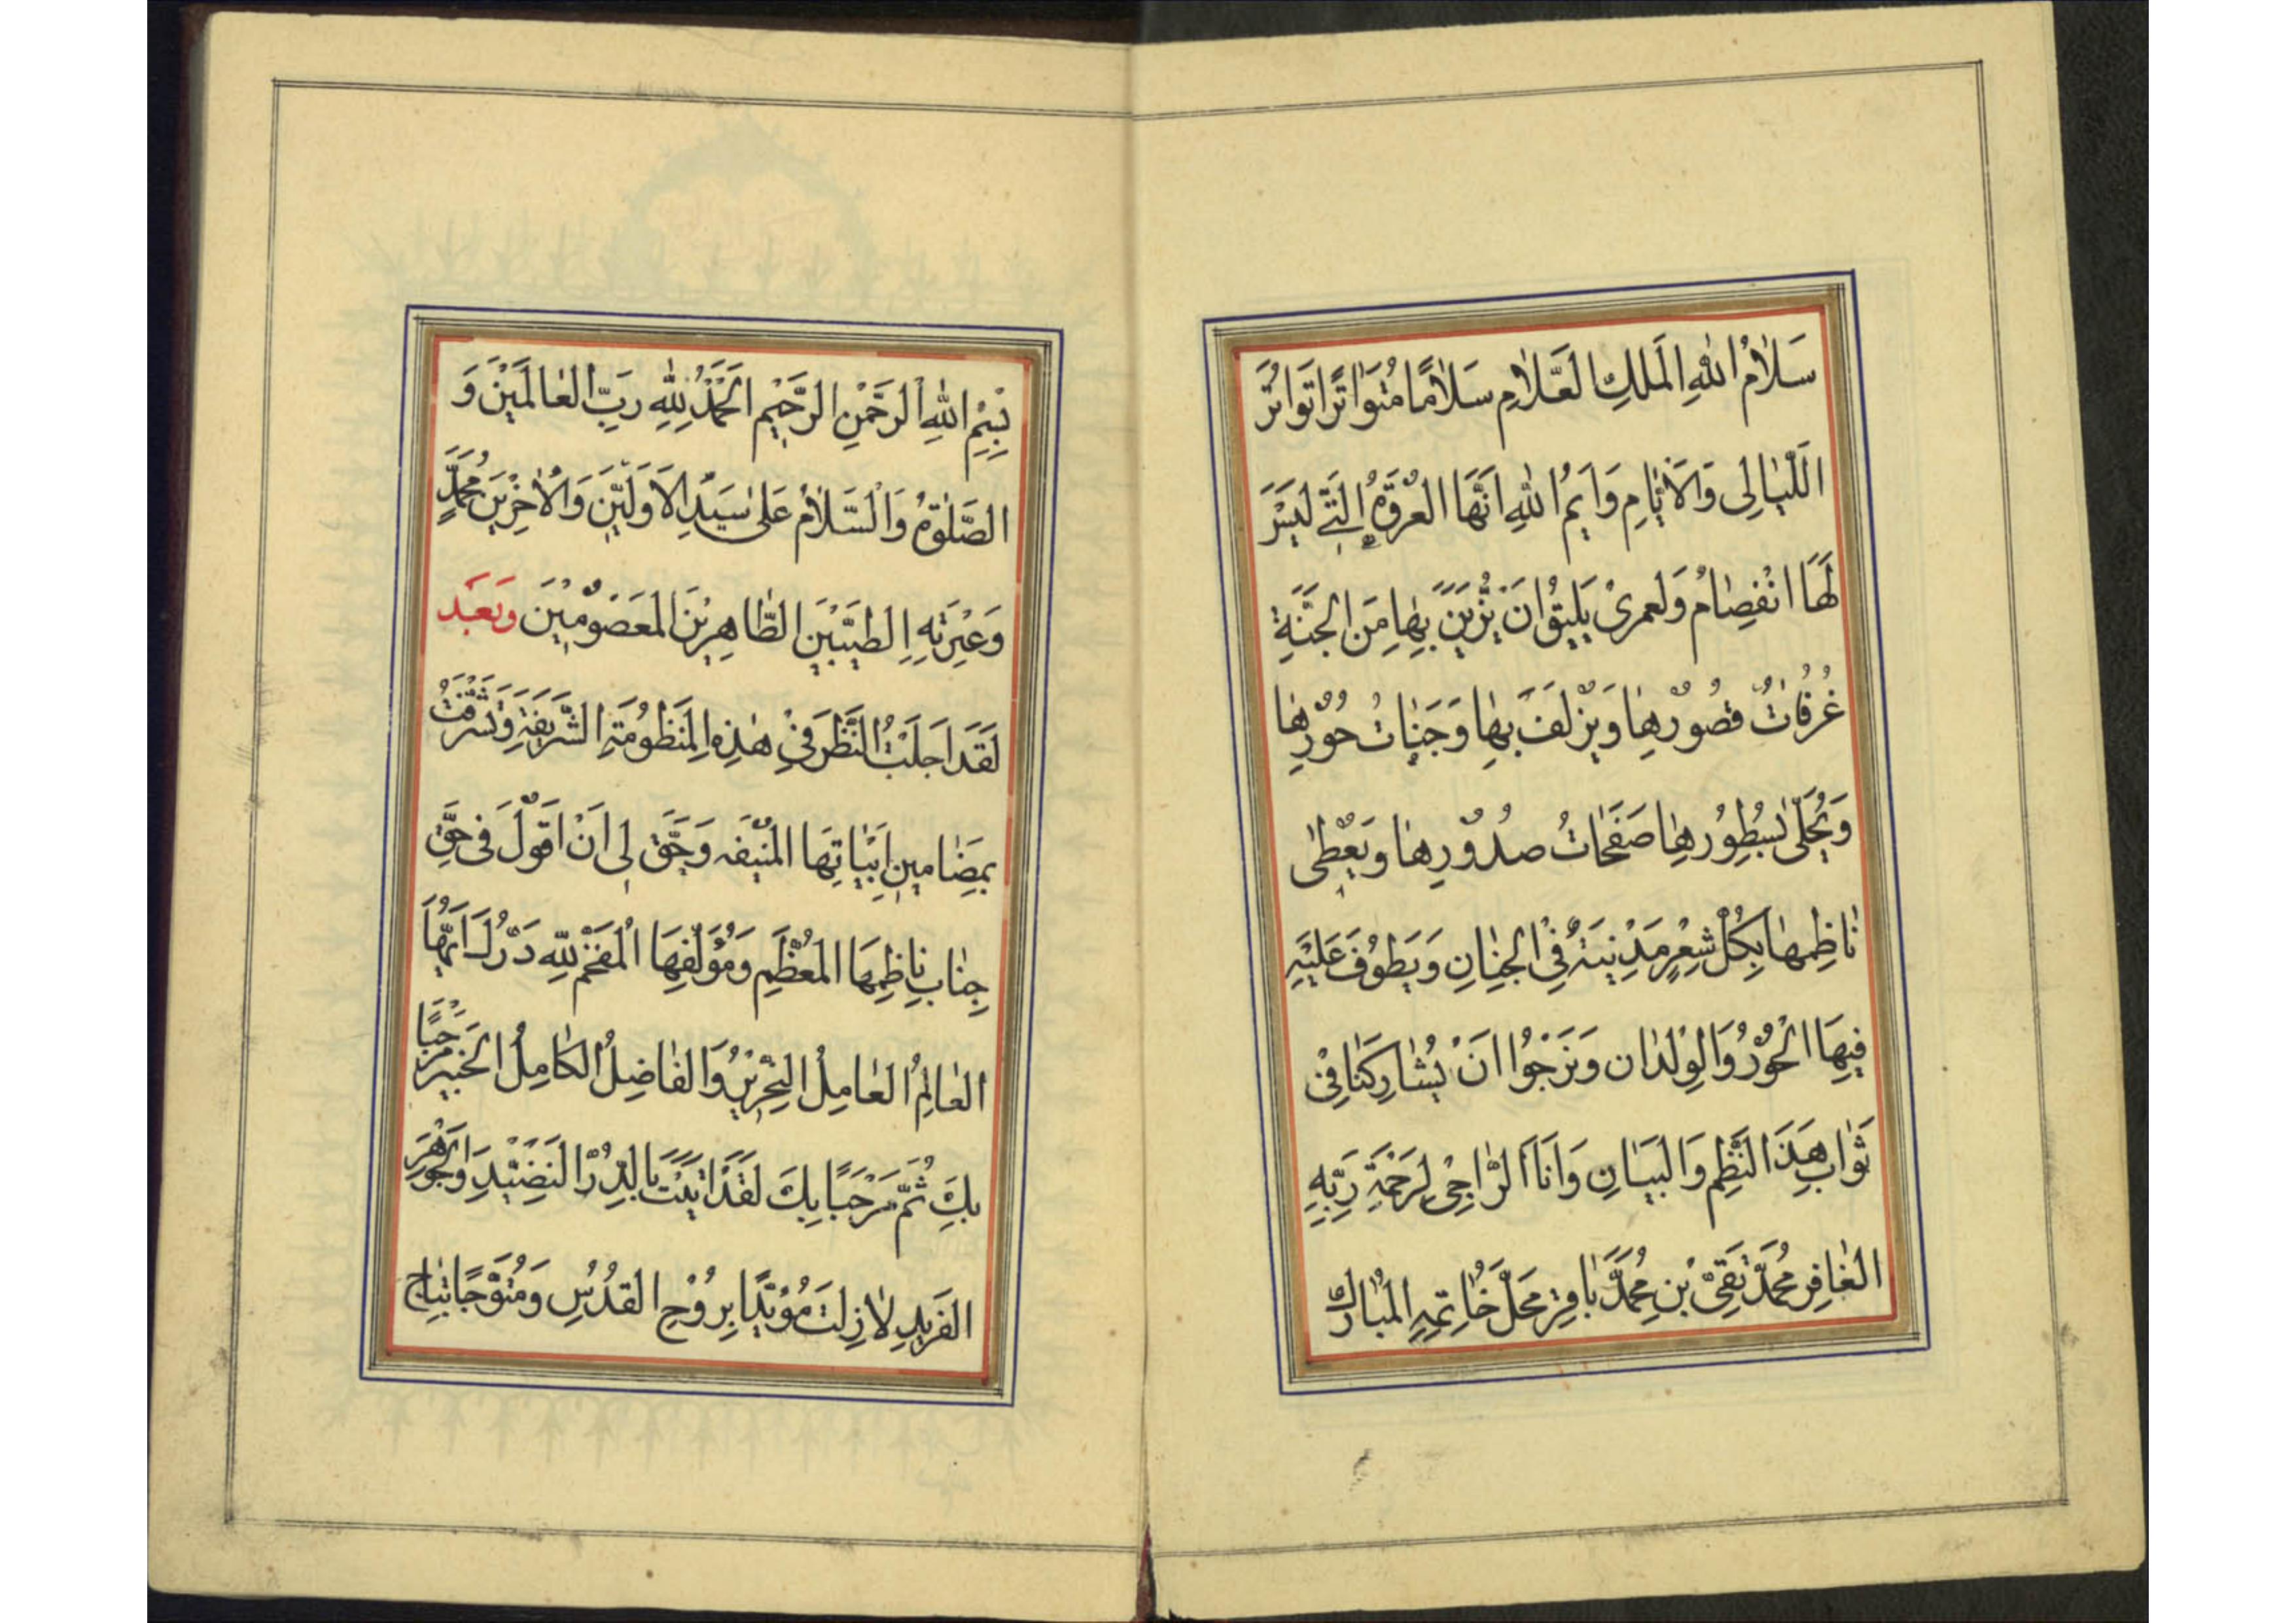 سَلامُ اللهِ المَلِكِ العَلّامِ سَلامًا مُتَوَاتِرًا تَوَاتُرَ
اللَّيَالِى وَالأَيّامِ وَايمُ اللهِ انَّهَا العُرْوَةُ الَّتى لَيْسَ
لَهَا انْفِصَامُ وَلَعمرى يَليقُ انَ يُزَيَّنَ بِهَا مِنَ الجَنَّةِ
غُرُفَاتُ قُصُورِهَا وَيَزْلفَ بِهَا وَجَنَاتُ حُورِهَا
وَيُحَلّى بسُطُورِهَا صَفَحَاتُ صُدُورِهَا وَيُعْطى
نَاظِمهَا بِكُلِّ شِعْرٍ مَدْينَةً فِى الجِنَانِ وَيَطُوفَ عَلَيْهِ
فِيهَا الْحُورُ وَالوِلْدَان وَنَرْجُوا انَ يُشَارِكَنَا فِىْ
ثَوَابِ هَذَا النَّظْمِ وَالبَيَانِ وَانَا الرَّاجِىْ لِرَحْمَةِ رَبِّهِ
الغَافِرِ مُحَمَّد تَقِىّ بْنِ مُحَمَّد بَاقِر مَحَلّ خَاتِمِهِ المُبَارك
بِسْمِ اللهِ الرَّحْمنِ الرَّحَيْمِ الْحَمْدُ لِلّهِ رَبِّ العَالَمَيْنَ وَ
الصَّلوةُ وَالْسَّلامُ عَلى سَيِّدِ الاَوَليّنَ وَالاخِرْينَ مُحَمَّدٍ
وَعِتْرَتِهِ الطَيّبَيْنَ الطّاهِرِيْنَ المَعصُومْينَ وَبَعَد
لَقَدَ اجَلَتُ النَّظَرَ فِىْ هذِهِ المَنظُومَةِ الشَّريفَةِ وَتَشَرَّفْتُ
بمَضَامينِ ابْيَاتِهَا المُنيْفَه وَحَقَّ لِى انَ اقَوُلَ فى حَقِّ
جنَابِ نَاظِمِهَا المُعَظَّمِ وَمُؤَلِّفِهَا المُفَخَّمِ لِلّهِ دَرُّكَ ايُّهَا
العَالِمُ العَامِلُ النِّحْرِيْرُ وَالفَاضِلُ الكَامِلُ الخَبِيْرُ مَرْحَبًا
بِكَ ثُمَّ مَرْحَبًا بِكَ لَقَدْ اتَيْتَ بالدُّرِّ النَضَيْدِ وَالجَوْهَرِ
الفَريدِ لازِلتَ مُؤيَّدًا بِرُوْحِ القُدُسِ وَمُتَوَّجًا بتاجِ